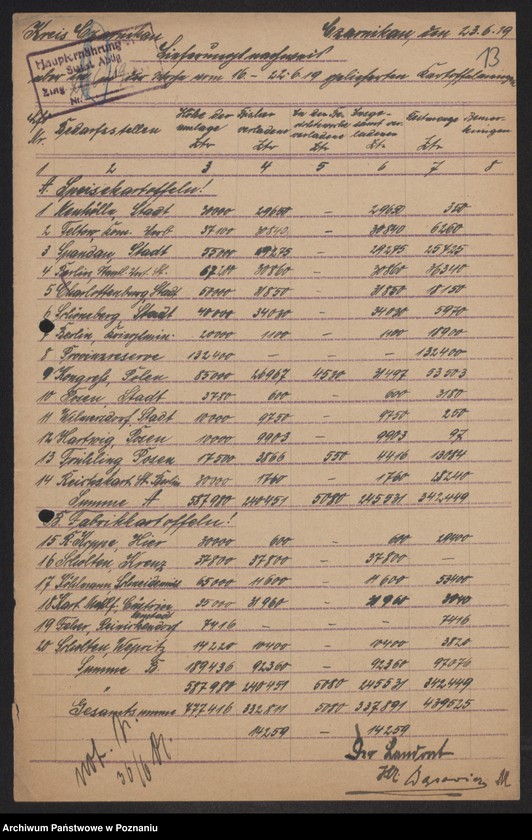 Kreis Czarnikau
Czarnikau, den 23.6.19
13
Lieferungsnachweis
Haupternährung
Eing.
Nr.
über die in der Woche vom 16 – 22.6.19 gelieferten Kartoffelmengen
Lfde Nr. Bedarfsstellen Höhe der Umlage Ztr Bisher verladene Ztr Ztr Insgesamt verladenen Ztr. Restmenge Ztr. Bemerkungen
1 2 3 4 5 6 7 8
A. Speisekartoffeln!
1 Neukölln, Stadt 30000 29650 – 29650 350
2 Teltow 37100 30840 – 30840 6260
3 Spandau, Stadt 55000 29275 – 29275 25725
4 Berlin 67200 30860 – 30860 36340
5 Charlottenburg Stadt 50000 31850 – 31850 18150
6 Schöneberg Stadt 40000 34030 – 34030 5970
7 Berlin, 20000 1100 – 1100 18900
8 Provinzreserve 132400 – – – 132400
9 Kongreß, Polen 85000 26967 4530 31497 53503
10 Posen Stadt 3780 600 – 600 3180
11 Wilmersdorf Stadt 10000 9750 – 9750 250
12 Hartwig, Posen 10000 9903 – 9903 97
13 Frühling Posen 17500 3866 550 4416 13084
14 Reichskart. St. Berlin 30000 1760 – 1760 28240
Summe A 587980 240451 5080 245531 342449
B. Fabrikkartoffeln!
15 Hoppe, Hier 30000 600 – 600 29400
16 Scholten, Kreuz 37800 37800 – 37800 –
17 Köhlmann Schneidemühl 65000 11600 – 11600 53400
18 Kart. Mehlf. Cüstrin Neustadt 35000 31960 – 31960 3040
19 Reinickendorf 7416 – – 7416
20 Scholten, Wepritz 14220 10400 – 10400 3820
Summe B 189436 92360 – 92360 97076
" A 587980 240451 5080 245531 342449
Gesamtsumme 777416 332811 5080 337891 439525
14259 – 14259
not. K.
30/6 Pl.
Der Landrat